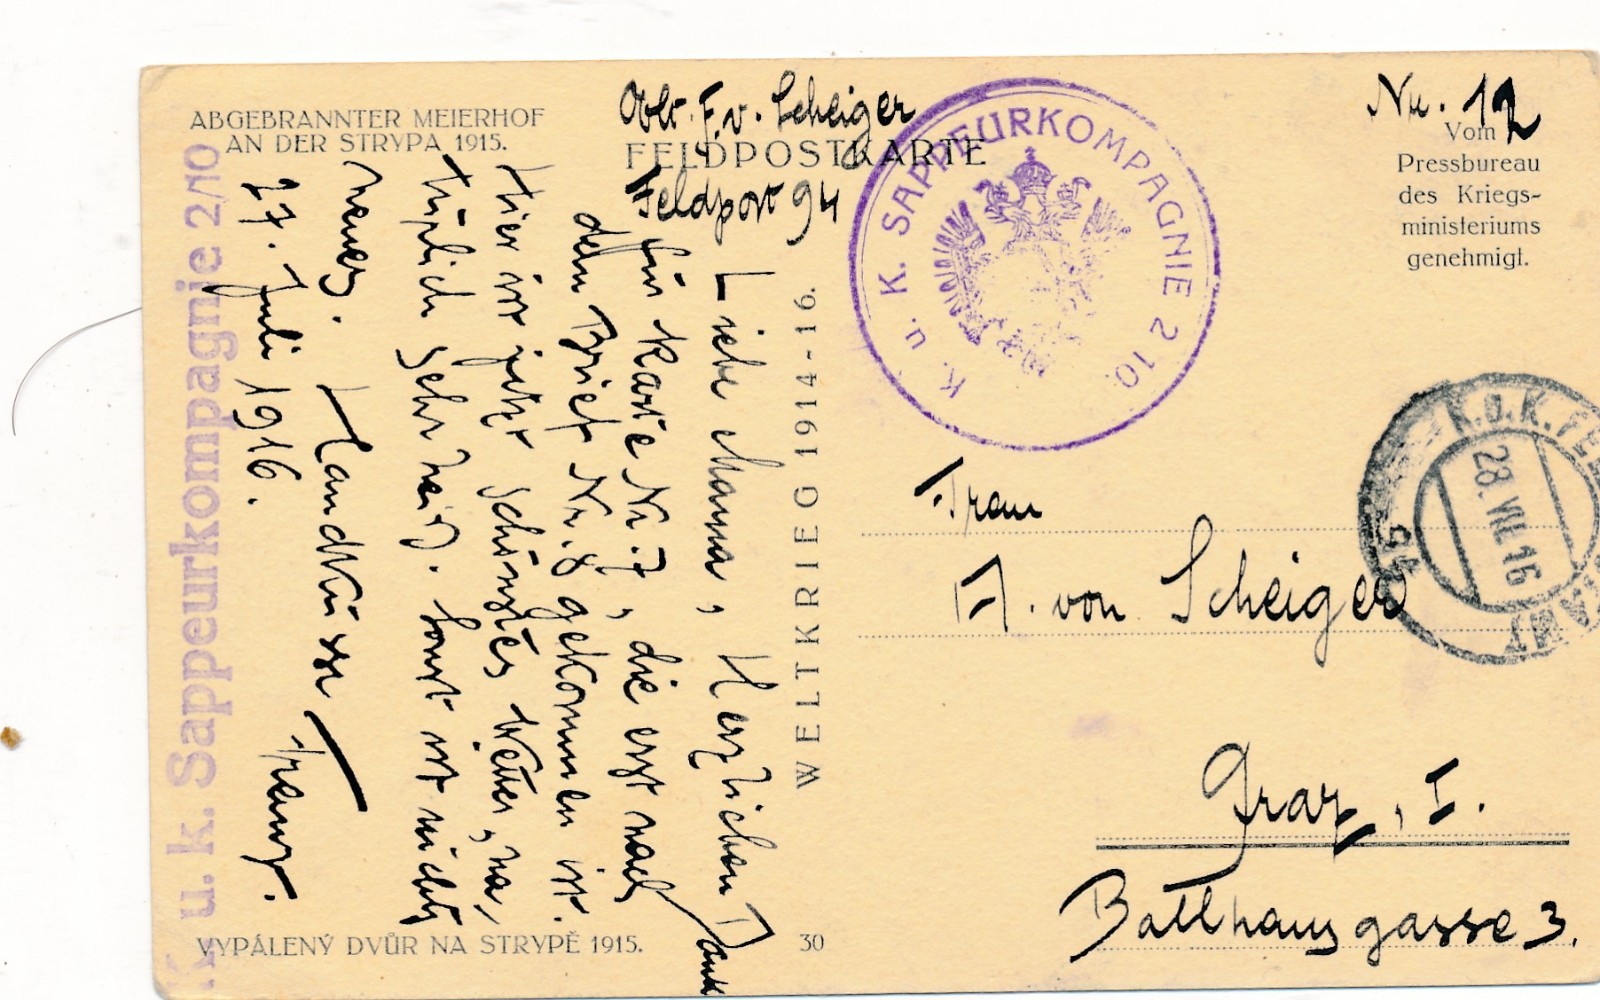 ABGEBRANNTER MEIERHOF
AN DER STRYPA 1915.
Oblt. F. v. Scheiger
FELDPOSTKARTE
Feldpost 94
Nr. 12
Vom
Pressbureau
des Kriegs-
ministeriums
genehmigt.
K. u. K. SAPPEURKOMPAGNIE 2/10.
K.u.K. FELDPOSTAMT
28. VII. 16
94
K. u. k. Sappeurkompagnie 2/10
Liebe Mama, Herzlichen Dank
für Karte Nr. 7, die erst nach
dem Brief Nr. 8 gekommen ist.
Hier ist jetzt schönstes Wetter, na-
türlich sehr heiß. Sonst ist nichts
neues. Handküsse
27. Juli 1916. Franz.
WELTKRIEG 1914-16.
Frau
A. von Scheiger
Graz, I.
Ballhausgasse 3.
VYPÁLENÝ DVŮR NA STRYPĚ 1915.
30